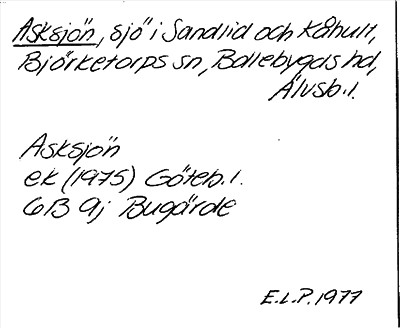 Asksjön, sjö i Sandlid och Kåhult,
Björketorps sn, Bollebygds hd,
Älvsb.l.
Asksjön
ek (1975) Göteb.l.
6B 9j Bugärde
E.L.P. 1977